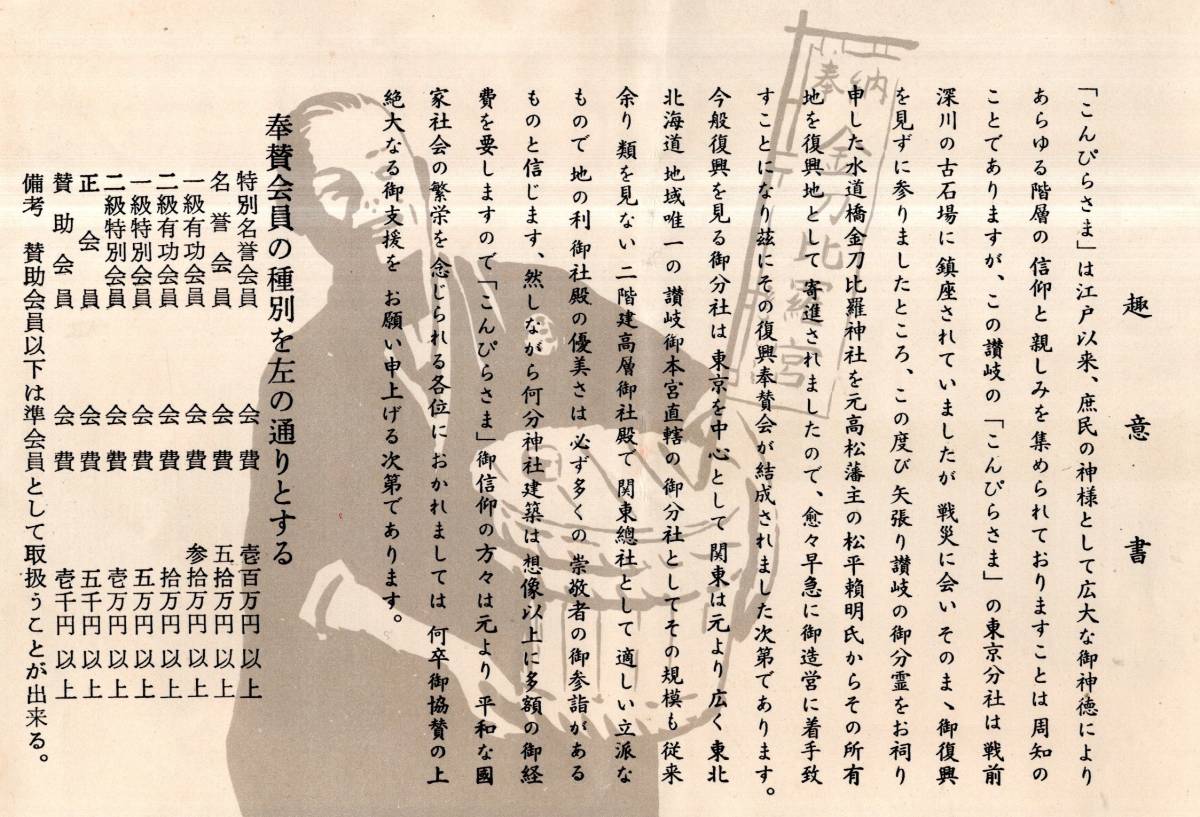 趣意書
「こんぴらさま」は江戸以来、庶民の神様として広大な御神徳により
あらゆる階層の信仰と親しみを集められておりますことは周知の
ことでありますが、この讃岐の「こんぴらさま」の東京分社は戦前
深川の古石場に鎮座されていましたが 戦災に会いそのまゝ御復興
を見ずに参りましたところ、この度び矢張り讃岐の御分霊をお祠り
申した水道橋金刀比羅神社を元高松藩主の松平頼明氏からその所有
地を復興地として寄進されましたので、愈々早急に御造営に着手致
すことになり茲にその復興奉賛会が結成されました次第であります。
今般復興を見る御分社は東京を中心として関東は元より広く東北
北海道 地域唯一の讃岐御本宮直轄の御分社としてその規模も従来
余り類を見ない二階建高層御社殿で関東總社として適しい立派な
もので 地の利御社殿の優美さは必ず多くの崇敬者の御参詣がある
ものと信じます、然しながら何分神社建築は想像以上に多額の御経
費を要しますので「こんぴらさま」御信仰の方々は元より平和な國
家社会の繁栄を念じられる各位におかれましては 何卒御協賛の上
絶大なる御支援を お願い申上げる次第であります。
奉賛会員の種別を左の通りとする
特別名誉会員 会費 壱百万円以上
名誉会員 会費 五拾万円以上
一級有功会員 会費 参拾万円以上
二級有功会員 会費 拾万円以上
一級特別会員 会費 五万円以上
二級特別会員 会費 壱万円以上
正会員 会費 五千円以上
賛助会員 会費 壱千円以上
備考 賛助会員以下は準会員として取扱うことが出来る。
奉納
金刀比羅宮